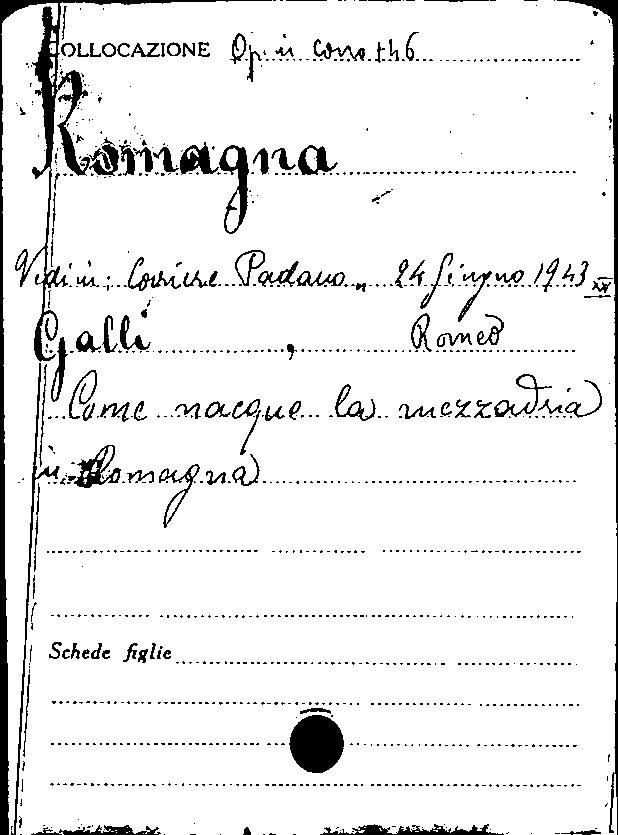 COLLOCAZIONE Op. in corso +h6
Romagna
Vedi in: Corriere Padano„ 24 Giugno 1943 XXI
Galli , Romeo
Come nacque la mezzadria
in Romagna
Schede figlie